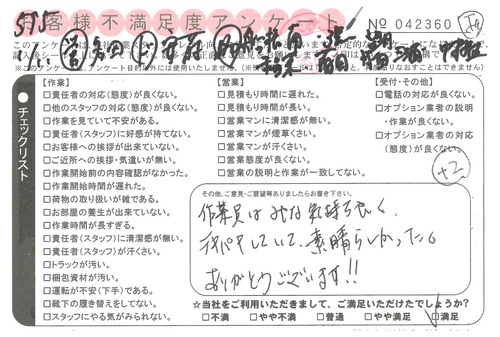 お客様不満足度アンケート NO 042360
チェックリスト
【作業】
□責任者の対応(態度)が良くない。
□他のスタッフの対応(態度)が良くない。
□作業を見ていて不安がある。
□責任者(スタッフ)に好感が持てない。
□お客様への挨拶が出来ていない。
□ご近所への挨拶・気遣いが無い。
□作業開始前の内容確認がなかった。
□作業開始時間が遅れた。
□荷物の取り扱いが雑である。
□お部屋の養生が出来ていない。
□作業時間が長すぎる。
□責任者(スタッフ)に清潔感が無い。
□責任者(スタッフ)が汗くさい。
□トラックが汚い。
□梱包資材が汚い。
□運転が不安(下手)である。
□靴下の履き替えをしてない。
□スタッフにやる気がみられない。
【営業】
□見積もり時間に遅れた。
□見積もり時間が長い。
□営業マンに清潔感が無い。
□営業マンが煙草くさい。
□営業マンが汗くさい。
□営業態度が良くない。
□営業の説明と作業が一致してない。
【受付・その他】
□電話の対応が良くない。
□オプション業者の説明
・作業が良くない。
□オプション業者の対応
(態度)が良くない。
+2
その他、ご意見・ご要望等ありましたらお書き下さい。
作業員はみな気持ちよく、
テキパキしていて、素晴らしかった。
ありがとうございます!!
☆当社をご利用いただきまして、ご満足いただけたでしょうか?
□不満 □やや不満 □普通 □やや満足 □満足